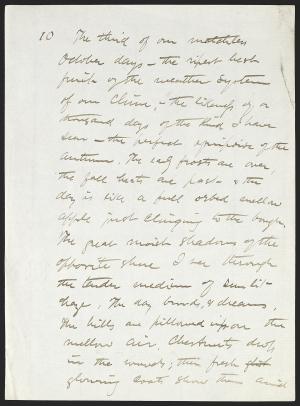 10 The third of our matchless
October days - the ripest best
fruit of the weather system
of our Clime, - the likeness of a
thousand days of the kind I have
seen - the perfect equipoise of the
autumn. The early frosts are over,
the fall heats are past & the
day is like a full orbed mellow
apple just clinging to the bough.
The great moist shadows of the
opposite shore I see through
the tender medium of sunlit
haze. The day broods, & dreams,
the hills are pillowed upon the
mellow air. Chestnuts drop
in the woods; their fresh
glowing coats show them amid